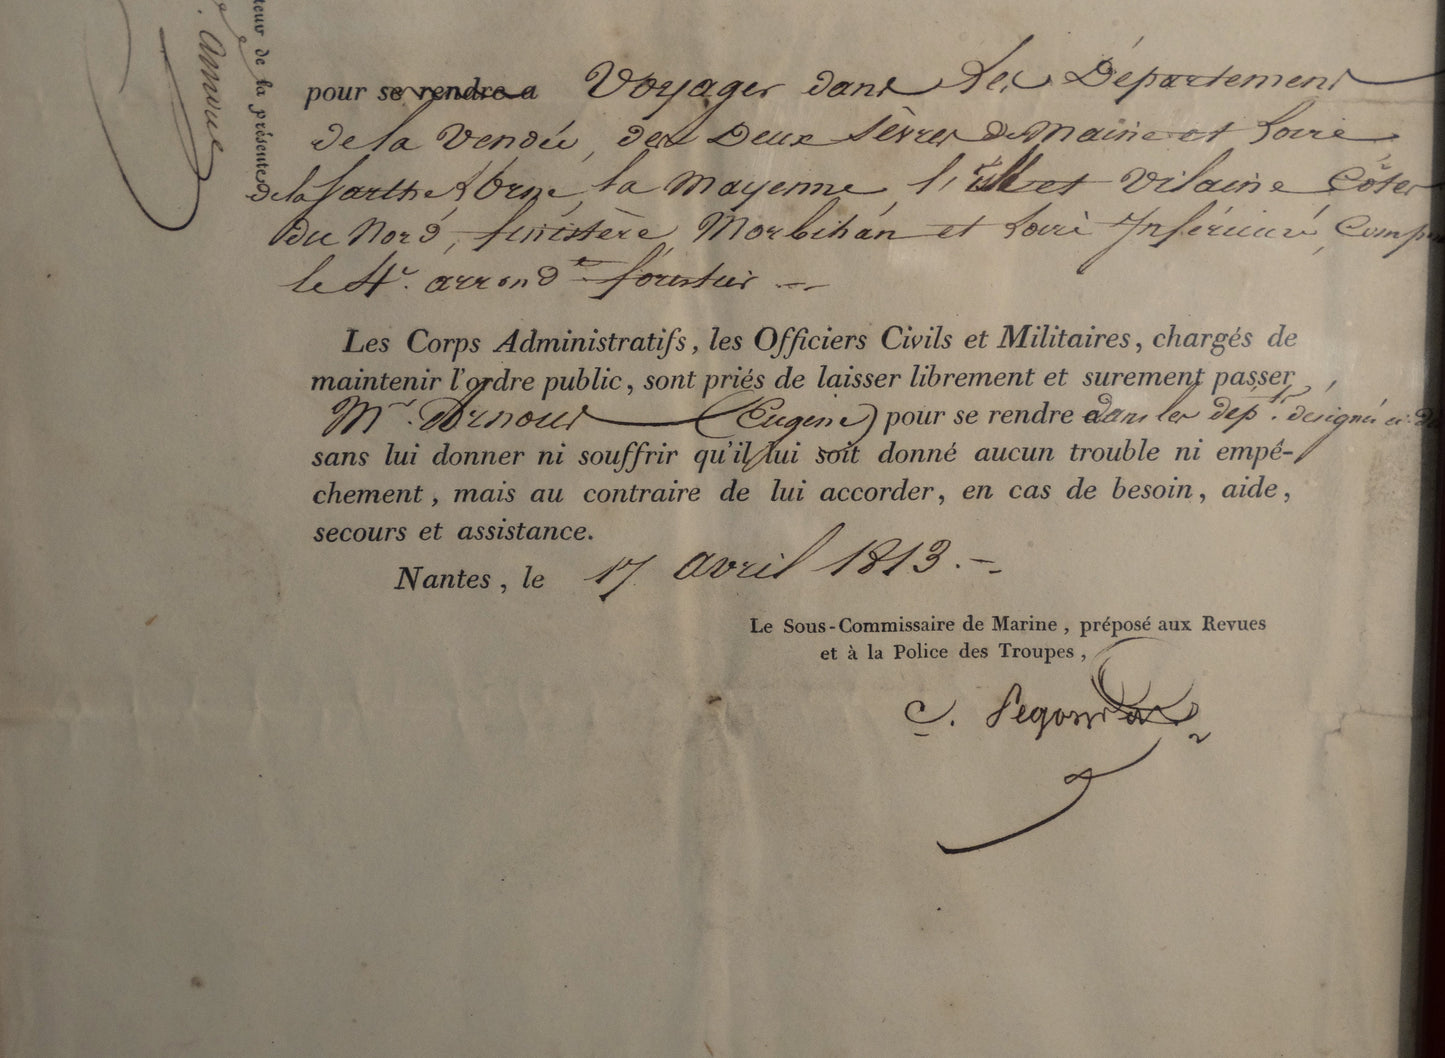 teur de la présente
pour se rendre a Voyager dans les Départemens
de la Vendée, des Deux Sèvres de Maine et Loire
de la Sarthe l'Orne, la Mayenne, l'ille et Vilaine Côtes
du Nord, finistère, Morbihan et Loire Inférieure,
le 4e. arrondt forestier
Les Corps Administratifs, les Officiers Civils et Militaires, chargés de
maintenir l'ordre public, sont priés de laisser librement et surement passer
Mr. Arnous (Eugène) pour se rendre dans les dépts. désignés
sans lui donner ni souffrir qu'il lui soit donné aucun trouble ni empê-
chement, mais au contraire de lui accorder, en cas de besoin, aide,
secours et assistance.
Nantes, le 17 avril 1813.
Le Sous-Commissaire de Marine, préposé aux Revues
et à la Police des Troupes,
C.